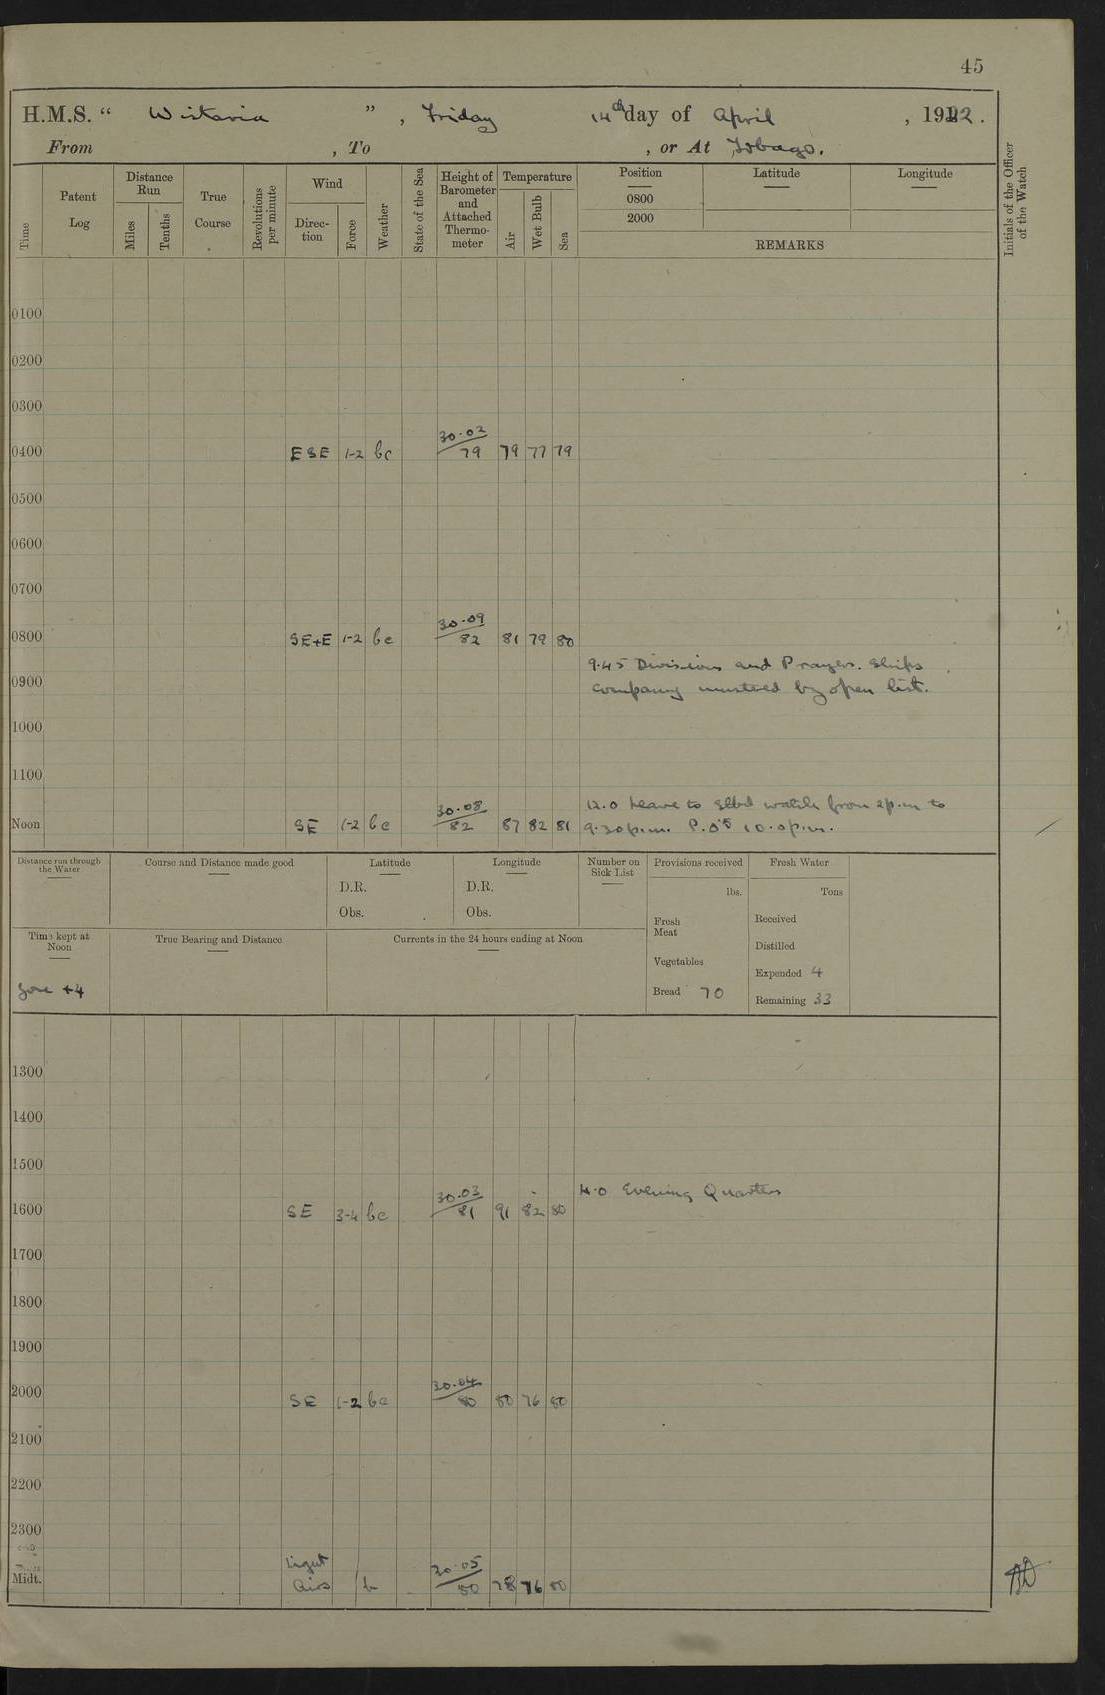 45
H.M.S. “ Wistaria ” , Friday 14th day of April , 1922.
From , To , or At Tobago.
Time
Patent Log
Distance Run
Miles
Tenths
True Course
Revolutions per minute
Wind
Direction
Force
Weather
State of the Sea
Height of Barometer and Attached Thermometer
Temperature
Air
Wet Bulb
Sea
Position Latitude Longitude
0800
2000
REMARKS
Initials of the Officer of the Watch
0100
0200
0300
0400 ESE 1-2 bc 30.02 79 79 77 79
0500
0600
0700
0800 SE+E 1-2 bc 30.09 82 81 79 80
9.45 Divisions and Prayers. Ships
0900 company mustered by open list.
1000
1100
12.0 Leave to Stbd watch from 2 p.m to
Noon SE 1-2 bc 30.08 82 87 82 81 9.30 p.m. P.O's 10.0 p.m.
Distance run through the Water
Course and Distance made good
Latitude
D.R.
Obs.
Longitude
D.R.
Obs.
Number on Sick List
Provisions received
lbs.
Fresh Meat
Vegetables
Bread 70
Fresh Water
Tons
Received
Distilled
Expended 4
Remaining 33
Time kept at Noon
Zone +4
True Bearing and Distance
Currents in the 24 hours ending at Noon
1300
1400
1500
4.0 Evening Quarters
1600 SE 3-4 bc 30.03 81 91 82 80
1700
1800
1900
2000 SE 1-2 bc 30.04 80 80 76 80
2100
2200
2300
Midt. Light Airs b 30.05 80 78 76 80